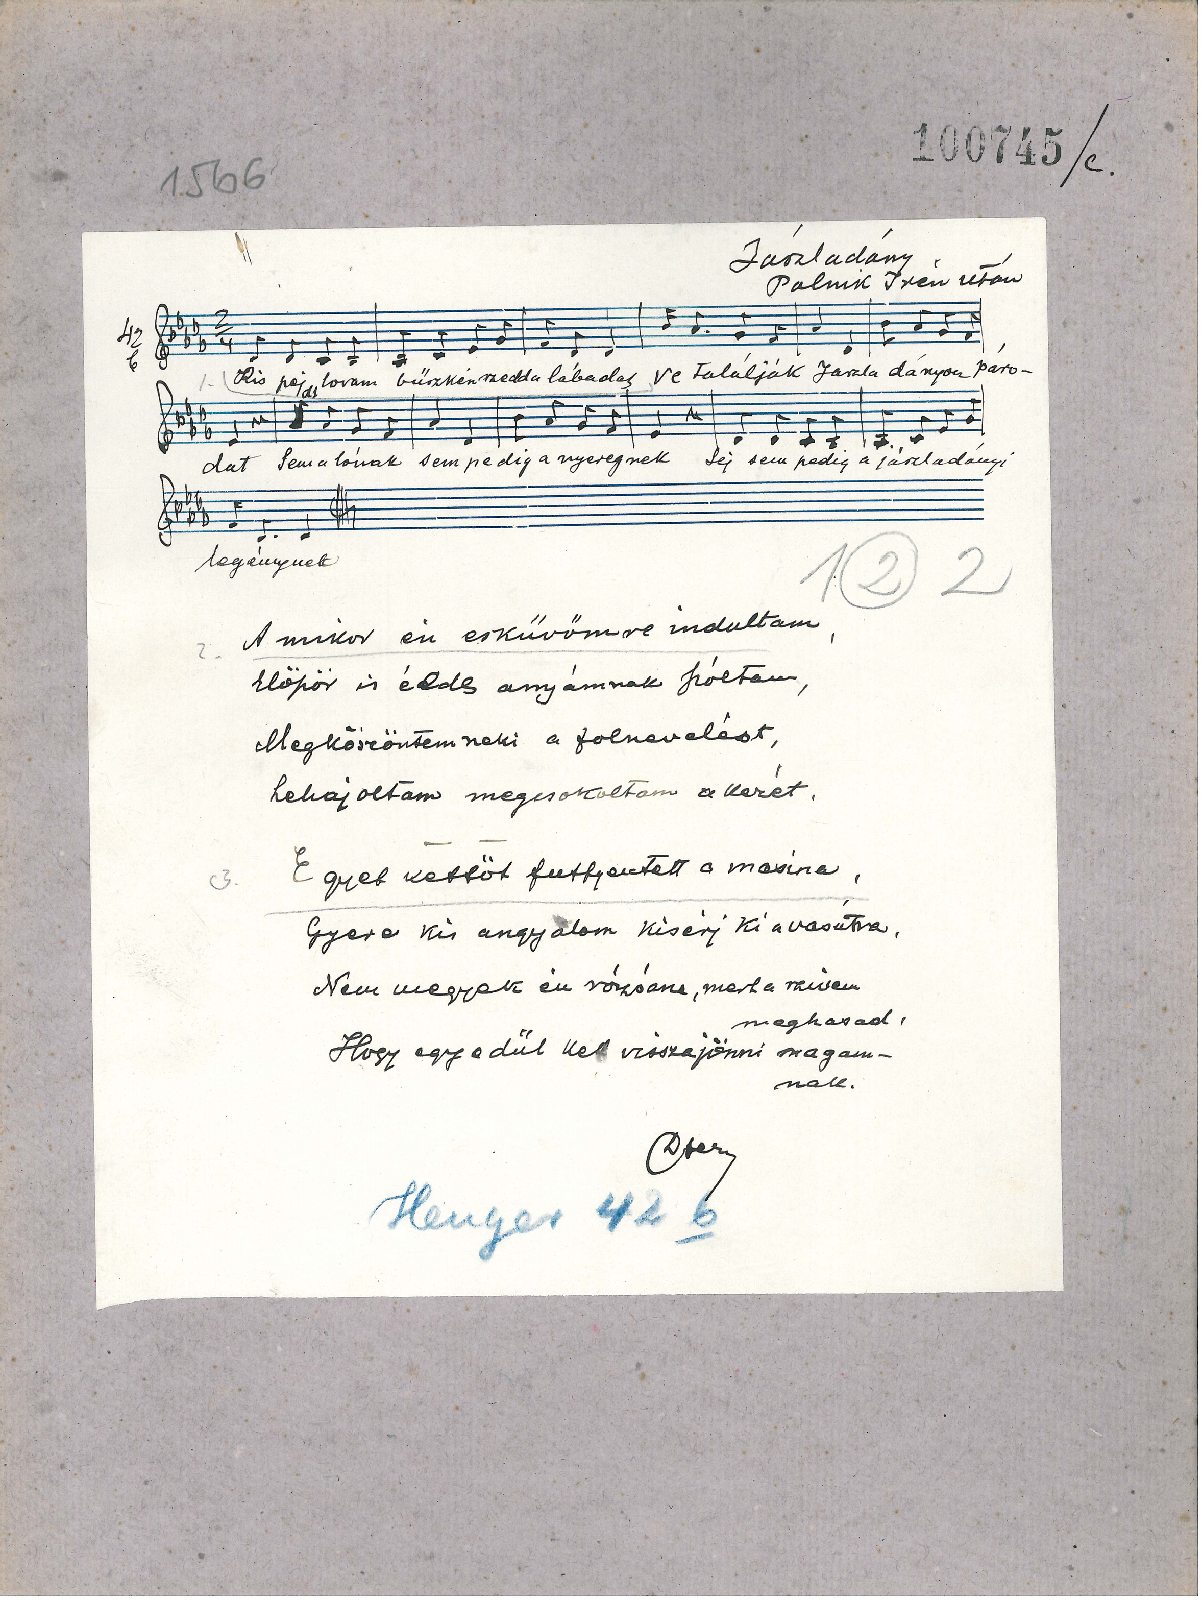 100745/c.
1566
Jászladány
Polnik Irén után
42
b
2
4
1. Kis pej lovam büszkén szedd a lábadat Ve találják Jaszla dányon páro-
dat Sem a lónak sem pedig a nyeregnek Sej sem pedig a jászladányi
legénynek
1 2 2
2. A mikor én esküvőmre indultam,
Előpör is édes anyámnak szóltam,
Megköszöntem neki a fölnevelést,
Lehajoltam megcsokoltam a kezét.
3. Egyet kettőt futtyentett a masina,
Gyere kis angyalom kisérj ki a vasútra.
Nem megyek én rózsáme, mert a szivem
meghasad,
Hogy egyedül kel visszajönni magam-
nak.
Henger 42 b